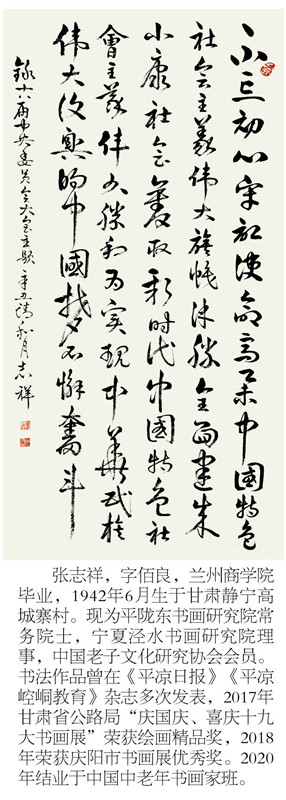 不忘初心牢記使命高举中國特色
社会主義伟大旗帜决勝全面建成
小康社会奪取新时代中國特色社
會主義伟大勝利为实現中華民族
伟大復興的中國梦不懈奮斗
錄十八届中央委员会大会主题 辛丑清和月志祥
张志祥，字佰良，兰州商学院
毕业，1942年6月生于甘肃静宁高
城寨村。现为平陇东书画研究院常
务院士，宁夏泾水书画研究院理
事，中国老子文化研究协会会员。
书法作品曾在《平凉日报》《平凉
崆峒教育》杂志多次发表，2017年
甘肃省公路局“庆国庆、喜庆十九
大书画展”荣获绘画精品奖，2018
年荣获庆阳市书画展优秀奖。2020
年结业于中国中老年书画家班。